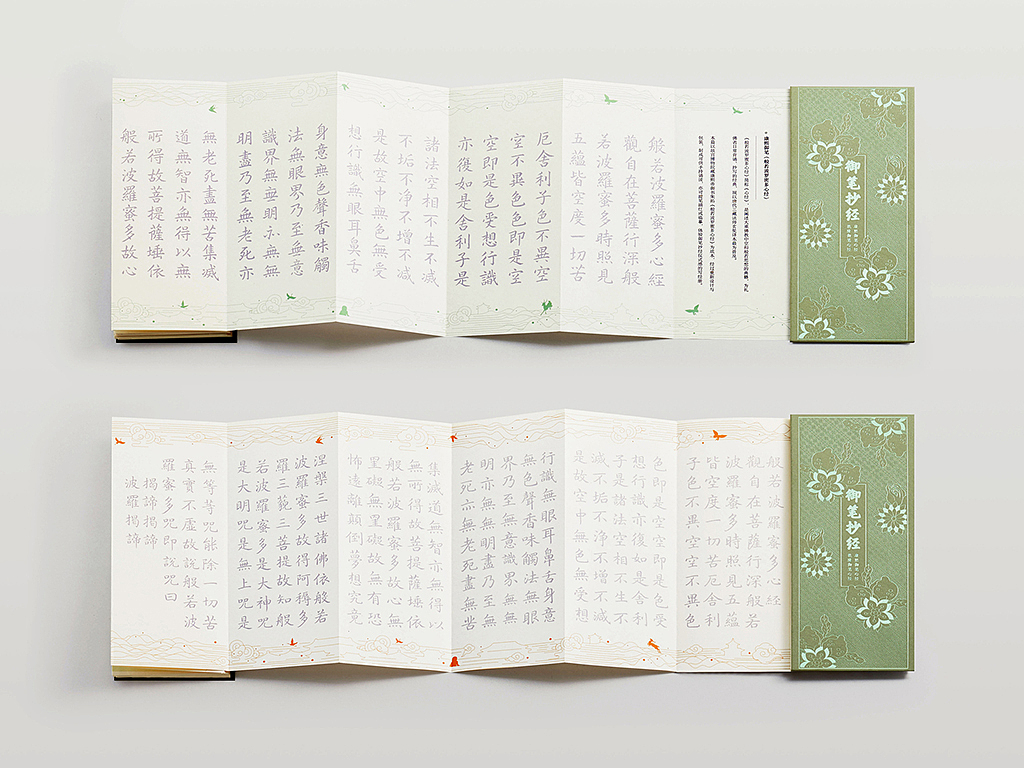 御笔抄经
般若波羅蜜多心經
觀自在菩薩行深般
若波羅蜜多時照見
五蘊皆空度一切苦
厄舍利子色不異空
空不異色色即是空
空即是色受想行識
亦復如是舍利子是
諸法空相不生不滅
不垢不净不增不減
是故空中無色無受
想行識無眼耳鼻舌
身意無色聲香味觸
法無眼界乃至無意
識界無無明亦無無
明盡乃至無老死亦
無老死盡無苦集滅
道無智亦無得以無
所得故菩提薩埵依
般若波羅蜜多故心
御笔抄经
般若波羅蜜多心經
觀自在菩薩行深般若
波羅蜜多時照見五蘊
皆空度一切苦厄舍利
子色不異空空不異色
色即是空空即是色受
想行識亦復如是舍利
子是諸法空相不生不
滅不垢不淨不增不減
是故空中無色無受想
行識無眼耳鼻舌身意
無色聲香味觸法無眼
界乃至無意識界無無
明亦無無明盡乃至無
老死亦無老死盡無苦
集滅道無智亦無得以
無所得故菩提薩埵依
般若波羅蜜多故心無
罣礙無罣礙故無有恐
怖遠離顛倒夢想究竟
涅槃三世諸佛依般若
波羅蜜多故得阿耨多
羅三藐三菩提故知般
若波羅蜜多是大神咒
是大明咒是無上咒是
無等等咒能除一切苦
真實不虛故說般若波
羅蜜多咒即說咒曰
揭諦揭諦
波羅揭諦